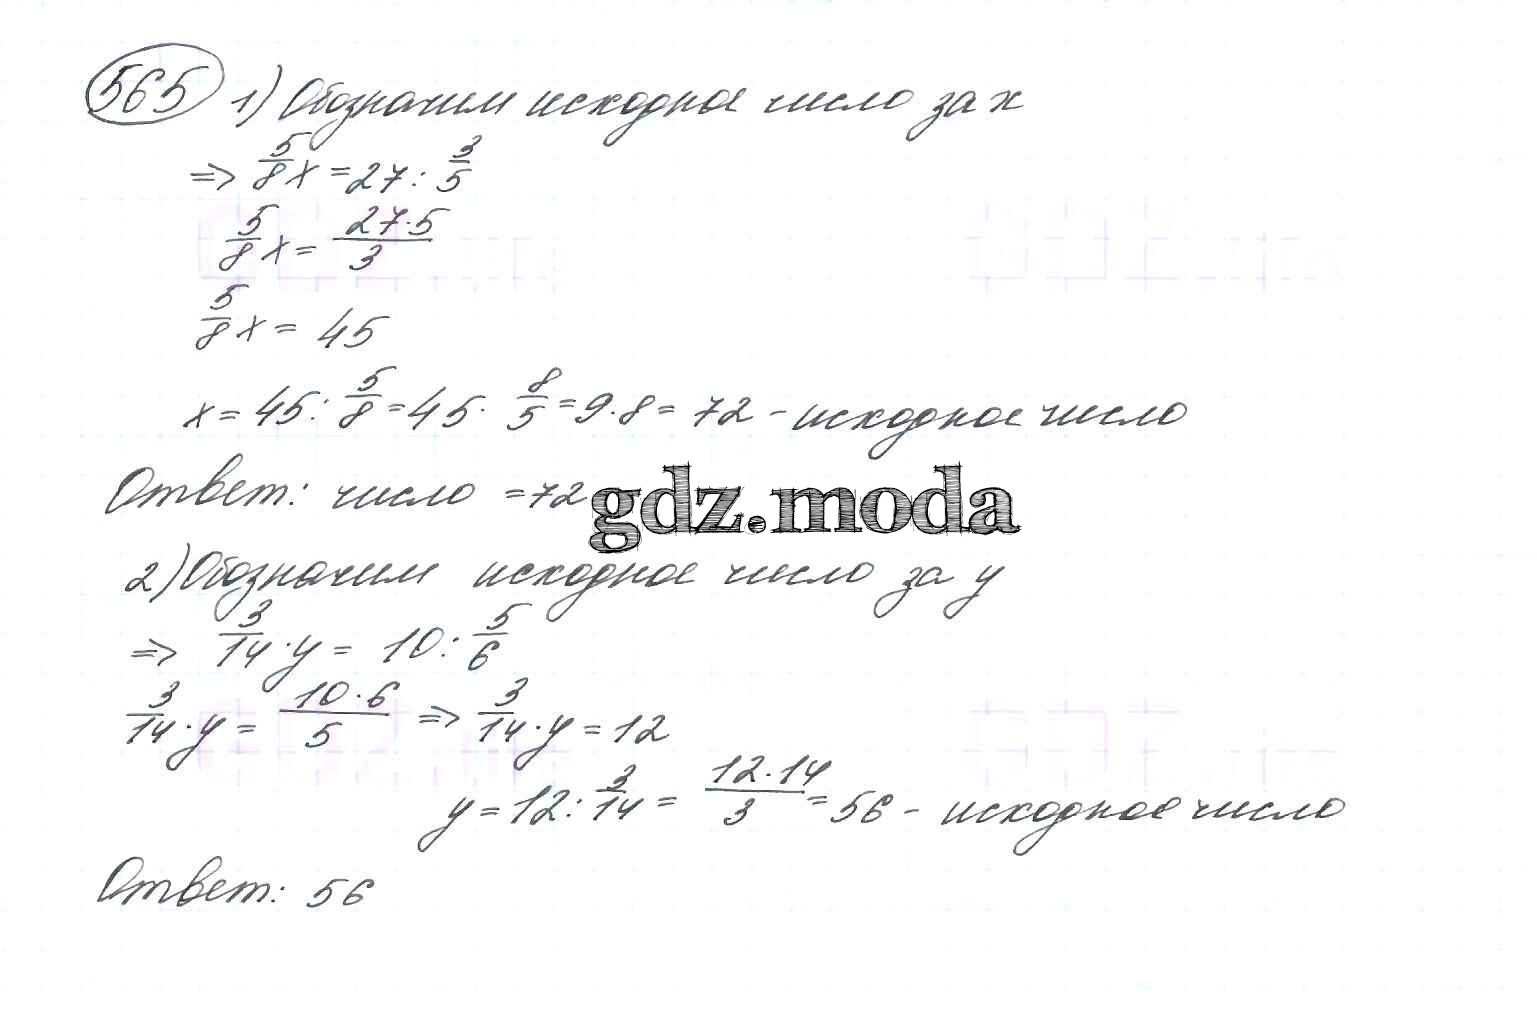 565 1) Обозначим исходное число за x
=> 5/8 x = 27 : 3/5
5/8 x = 27·5/3
5/8 x = 45
x = 45 : 5/8 = 45 · 8/5 = 9·8 = 72 - исходное число
Ответ: число = 72
gdz.moda
2) Обозначим исходное число за y
=> 3/14 · y = 10 : 5/6
3/14 · y = 10·6/5 => 3/14 · y = 12
y = 12 : 3/14 = 12·14/3 = 56 - исходное число
Ответ: 56